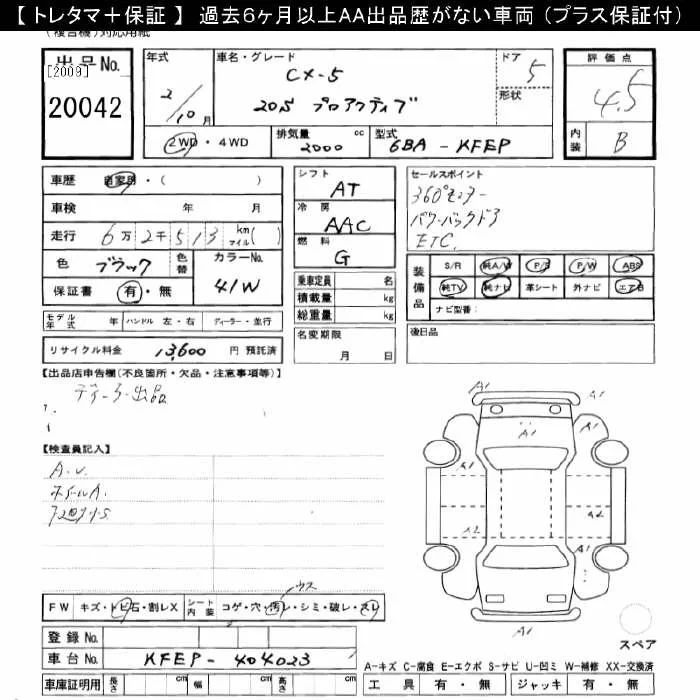 【 トレタマ＋保証 】 過去6ヶ月以上AA出品歴がない車両（プラス保証付）
出品No. [2009] 20042
年式 2/10月
車名・グレード CX-5
20S プロアクティブ
ドア 5
形状
評価点 4.5
内装 B
2WD・4WD
排気量 2000 cc
型式 6BA - KFEP
車歴 自家用・( )
車検 年 月
走行 6万2千513 km マイル( )
色 ブラック 色替
カラーNo. 41W
保証書 有・無
シフト AT
冷房 AAC
燃料 G
乗車定員 名
積載量 kg
総重量 kg
名変期限 月 日
セールスポイント
360°モニター
パワーバックドア
ETC.
装備品
S/R 純A/W P/S P/W ABS
純TV 純ナビ 革シート 外ナビ エアB
ナビ型番：
後日品
モデル年式 年 ハンドル 左・右 ディーラー・並行
リサイクル料金 13,600 円 預託済
【出品店申告欄(不良箇所・欠品・注意事項等)】
ディーラー出品
【検査員記入】
A.U.
ホイールA.
A1
A1
A1
A1
A1
A2
A2
A1
A1
A1
FW キズ・トビ石・割レX シート内装 コゲ・穴・汚レ・シミ・破レ・スレ
登録No.
車台No. KFEP - 404023
車庫証明用 長さ cm 幅 cm 高さ cm
スペア
A-キズ C-腐食 E-エクボ S-サビ U-凹ミ W-補修 XX-交換済
工具 有・無 ジャッキ 有・無